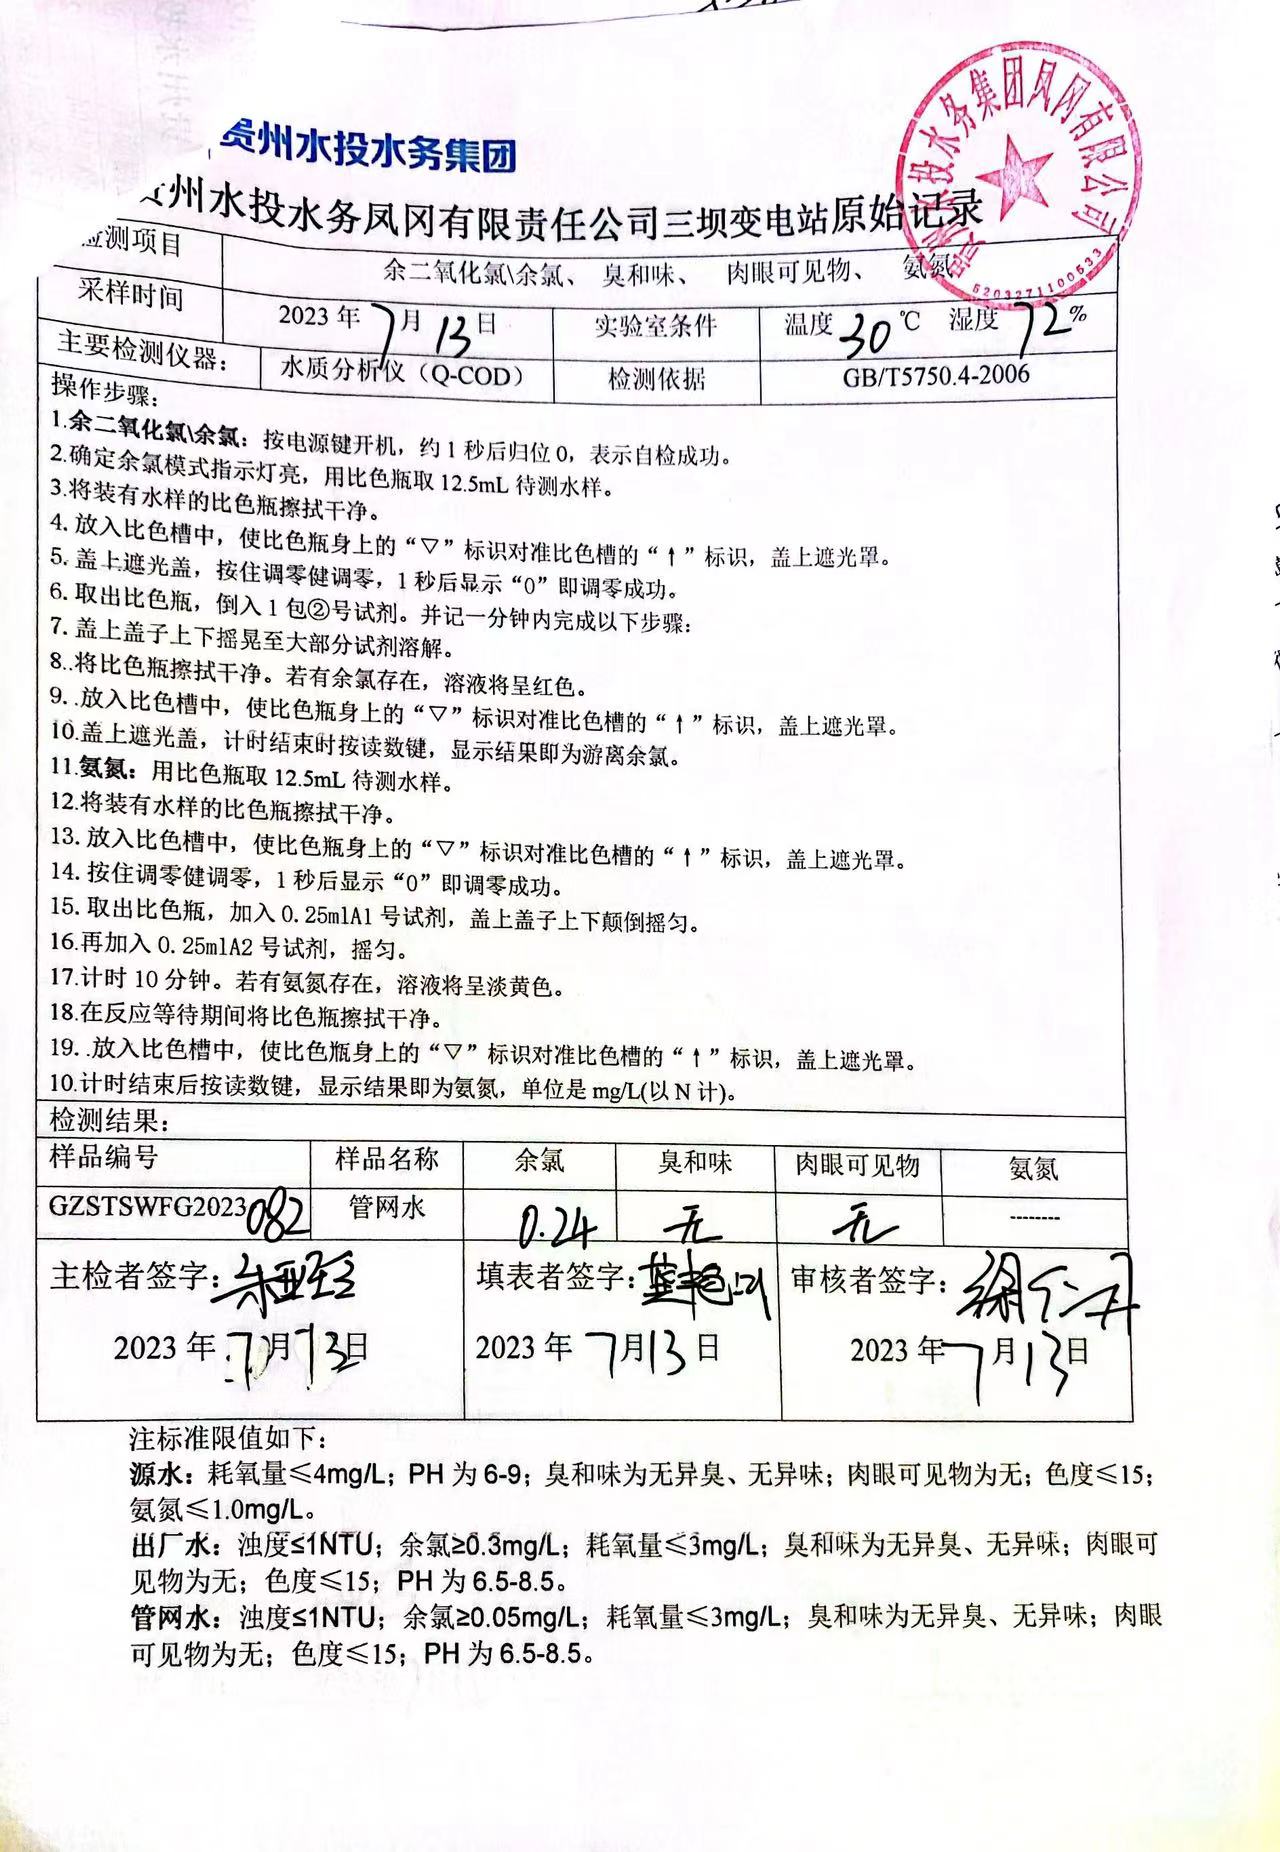 贵州水投水务集团
贵州水投水务凤冈有限责任公司三坝变电站原始记录
检测项目 余二氧化氯\余氯、 臭和味、 肉眼可见物、 氨氮
采样时间 2023 年 7 月 13 日 实验室条件 温度 30 ℃ 湿度 72 %
主要检测仪器： 水质分析仪（Q-COD） 检测依据 GB/T5750.4-2006
操作步骤：
1.余二氧化氯\余氯：按电源键开机，约 1 秒后归位 0，表示自检成功。
2.确定余氯模式指示灯亮，用比色瓶取 12.5mL 待测水样。
3.将装有水样的比色瓶擦拭干净。
4. 放入比色槽中，使比色瓶身上的“▽”标识对准比色槽的“↑”标识，盖上遮光罩。
5. 盖上遮光盖，按住调零健调零，1 秒后显示“0”即调零成功。
6. 取出比色瓶，倒入 1 包②号试剂。并记一分钟内完成以下步骤：
7. 盖上盖子上下摇晃至大部分试剂溶解。
8..将比色瓶擦拭干净。若有余氯存在，溶液将呈红色。
9. .放入比色槽中，使比色瓶身上的“▽”标识对准比色槽的“↑”标识，盖上遮光罩。
10.盖上遮光盖，计时结束时按读数键，显示结果即为游离余氯。
11.氨氮：用比色瓶取 12.5mL 待测水样。
12.将装有水样的比色瓶擦拭干净。
13. 放入比色槽中，使比色瓶身上的“▽”标识对准比色槽的“↑”标识，盖上遮光罩。
14. 按住调零健调零，1 秒后显示“0”即调零成功。
15. 取出比色瓶，加入 0.25mlA1 号试剂，盖上盖子上下颠倒摇匀。
16.再加入 0.25mlA2 号试剂，摇匀。
17.计时 10 分钟。若有氨氮存在，溶液将呈淡黄色。
18.在反应等待期间将比色瓶擦拭干净。
19. .放入比色槽中，使比色瓶身上的“▽”标识对准比色槽的“↑”标识，盖上遮光罩。
10.计时结束后按读数键，显示结果即为氨氮，单位是 mg/L(以 N 计)。
检测结果：
样品编号 样品名称 余氯 臭和味 肉眼可见物 氨氮
GZSTSWFG2023082 管网水 0.24 无 无 --------
主检者签字： 填表者签字： 审核者签字：
2023 年 7 月 13 日 2023 年 7 月 13 日 2023 年 7 月 13 日
注标准限值如下：
源水：耗氧量≤4mg/L；PH 为 6-9；臭和味为无异臭、无异味；肉眼可见物为无；色度≤15；
氨氮≤1.0mg/L。
出厂水：浊度≤1NTU；余氯≥0.3mg/L；耗氧量≤3mg/L；臭和味为无异臭、无异味；肉眼可
见物为无；色度≤15；PH 为 6.5-8.5。
管网水：浊度≤1NTU；余氯≥0.05mg/L；耗氧量≤3mg/L；臭和味为无异臭、无异味；肉眼
可见物为无；色度≤15；PH 为 6.5-8.5。
贵州水投水务集团凤冈有限公司
5203271100533